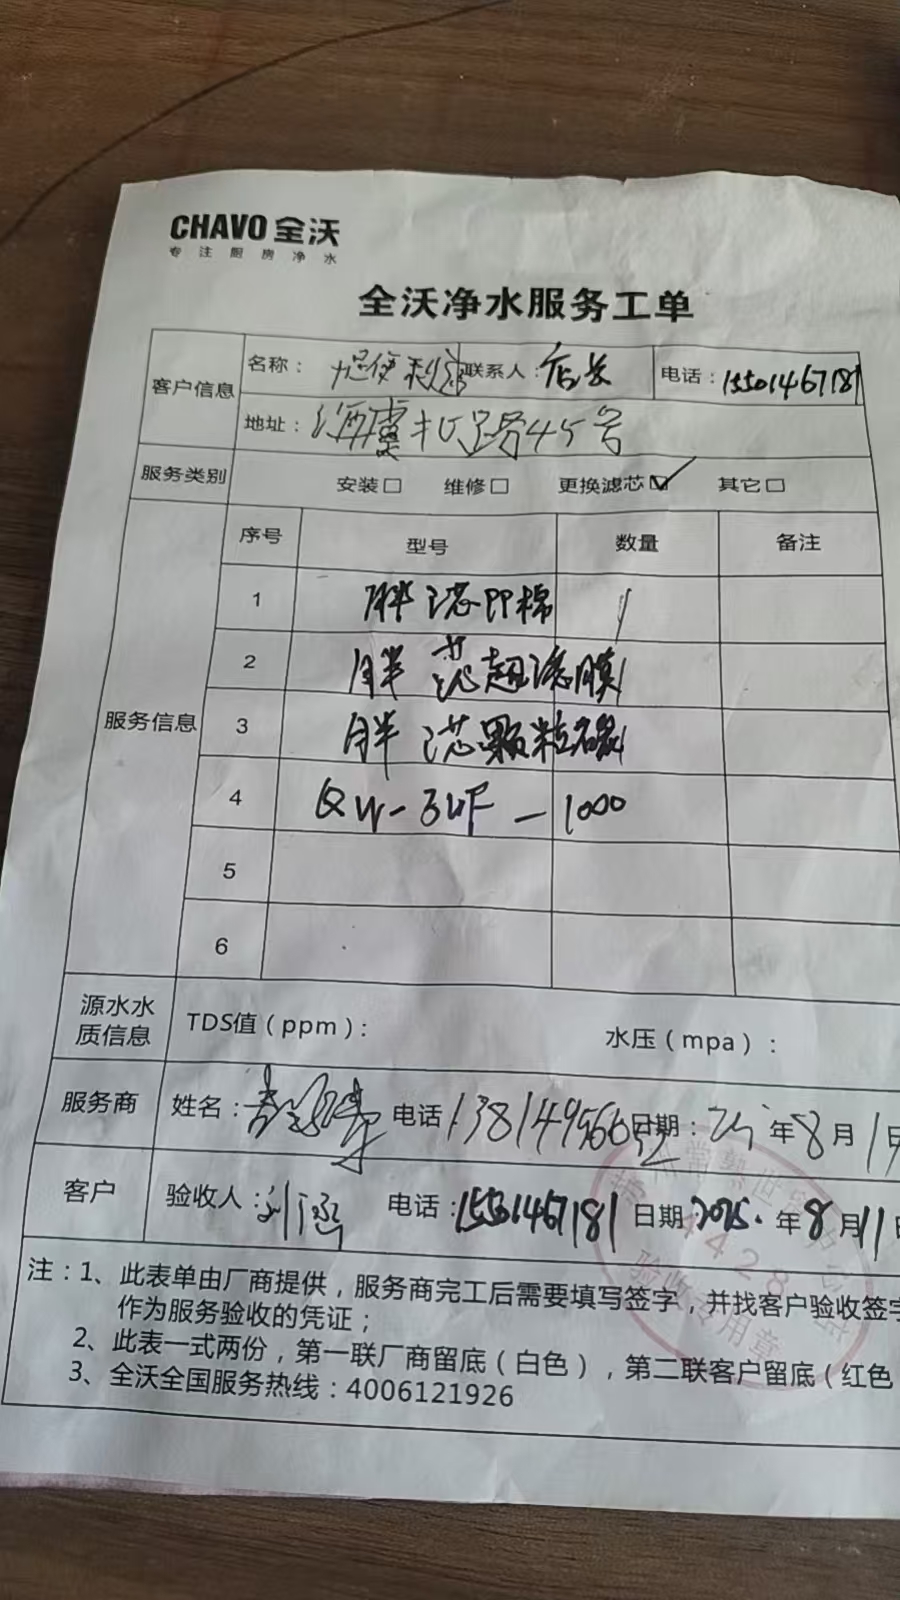 CHAVO 全沃
专注厨房净水
全沃净水服务工单
客户信息 名称： 便利 联系人：店长 电话：15501467181
地址：海虞北路45号
服务类别 安装□ 维修□ 更换滤芯☑ 其它□
服务信息 序号 型号 数量 备注
1 胖滤芯PP棉 1
2 胖 滤芯超滤膜 1
3 胖 滤芯颗粒碳 1
4 QW-3UF-1000
5
6
源水水质信息 TDS值（ppm）： 水压（mpa）：
服务商 姓名： 电话 日期： 25 年8月1
客户 验收人： 电话：15501467181 日期 2025. 年8月11日
常熟世
4428
验收专用章
注：1、此表单由厂商提供，服务商完工后需要填写签字，并找客户验收签字
作为服务验收的凭证；
2、此表一式两份，第一联厂商留底（白色），第二联客户留底（红色
3、全沃全国服务热线：4006121926